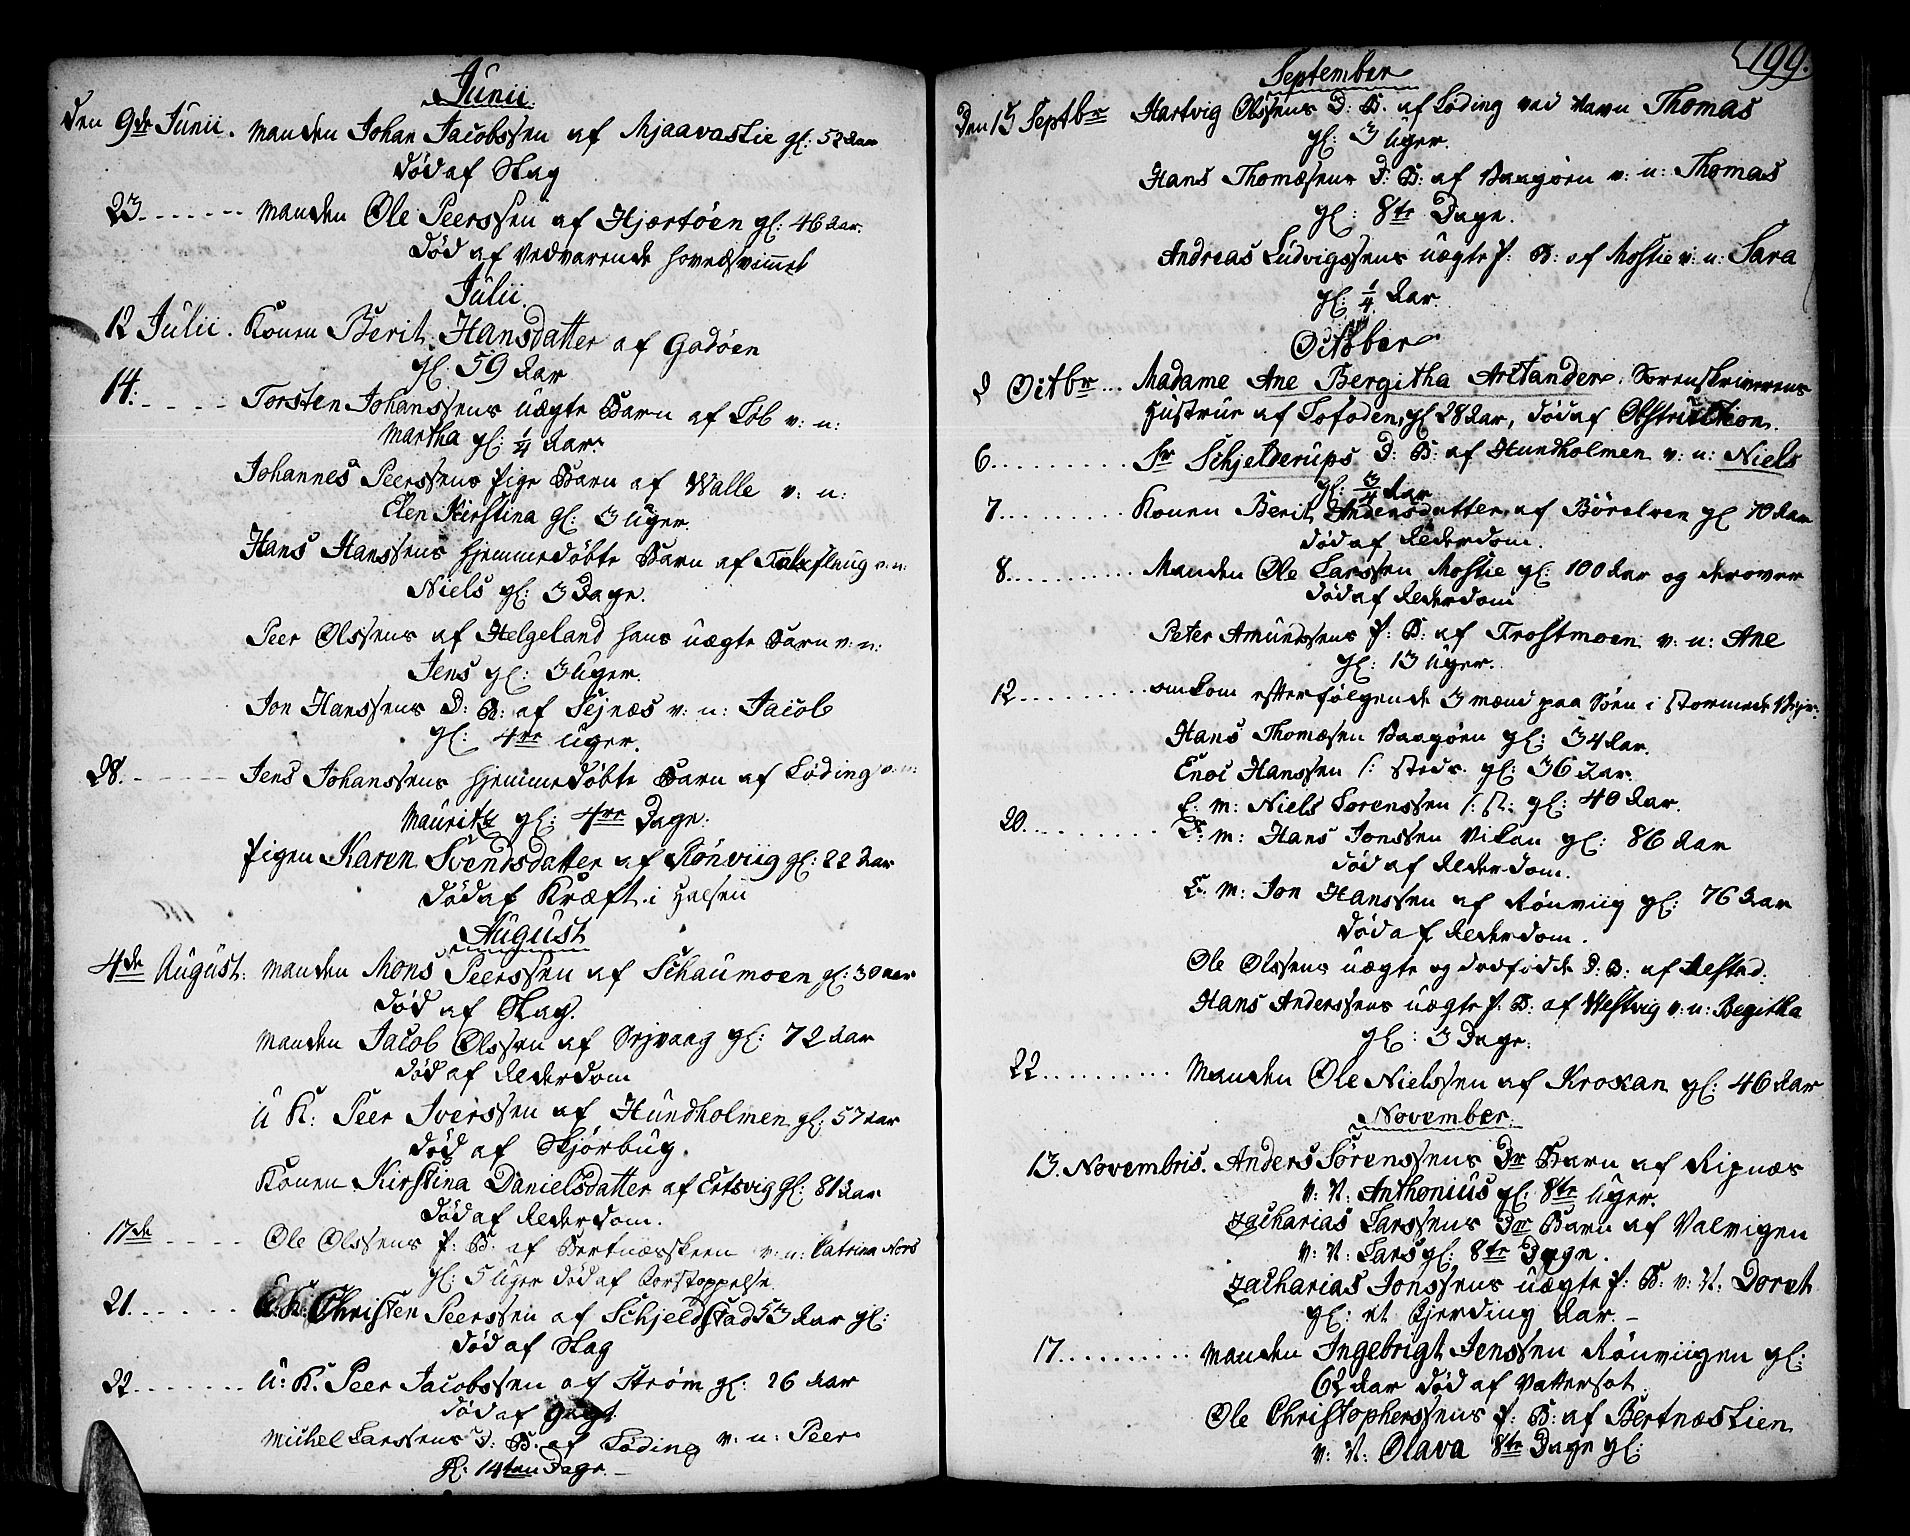 Junii
Den 9de Junii. Manden Johan Jacobssen af Mjaavastie gl: 52 Aar
død af Slag
23. Manden Ole Peerssen af Hjertøen gl: 46 Aar.
Død af vedvarende Hovedsvimmel
Julii.
12 Julii. Konen Berit Hansdatter af Godøen
gl. 59 Aar
14. Torsten Johanssens uægte Barn af Løb v: n:
Martha gl: 1/4 Aar.
Johannes Peerssens Pige Barn af Walle v: n:
Elen Kirstina gl: 3 Uger.
Hans Hanssens hjemmedøbte Barn af v: n:
Niels gl: 3 Dage.
Peer Olssens af Helgeland hans uægte Barn v: n:
Jens gl: 3 Uger.
Jon Hanssens D: B: af Sejnæs v: n: Jacob
gl: 4re Uger.
28. Jens Johanssens hjemmedøbte Barn af Løding v: n:
Mauritz gl: 4re Dage.
Pigen Karen Svendsdatter af Rönviig gl: 22 Aar
død af Kræft i Halsen
August
4de August. Manden Mons Peerssen af Schaumoen gl: 30 Aar
død af Slag.
Manden Jacob Olssen af Sejvaag gl: 72 Aar
død af Alderdom
U K: Peer Iverssen af Hundholmen gl: 57 Aar
død af Skjørbug.
Konen Kirstina Danielsdatter af Ertsvig gl: 81 Aar
død af Alderdom.
17de Ole Olssens P: B: af Bertnæsskeen v: n: Catrina
gl: 5 Uger død af Borstoppelse
21. U: K: Christen Peerssen af Schjelstad 53 Aar gl:
død af Slag
22. U: K. Peer Jacobssen af Strøm gl: 26 Aar
død af
Michel Larssens D: B: af Løding v: n: Peer
gl: 14ten Dage. –
199.
September
Den 15 Septbr Hartvig Olssens D: B. af Løding ved Navn Thomas
gl: 3 Uger.
Hans Thomæsens D: B: af Baagøen v: n: Thomas
gl: 8te Dage.
Andreas Ludvigssens uægte P: B: af Mostie v: n: Sara
gl: 1/4 Aar.
October
2 Octbr Madame Ane Bergitha Arctander, Sorenskriverens
Hustrue af Lofoden, gl 28 Aar, død af Obstruction.
6. Sr Schjelderups D: B: af Hundholmen v: n: Niels
gl: 3/4 Aar
7. Konen Berit Andersdatter af Börelven gl 70 Aar
død af Alderdom.
8. Manden Ole Larssen Mostie gl: 100 Aar og derover
død af Alderdom
Peter Amundssens P: B: af Trostmoen v: n: Ane
gl: 13 Uger.
12. omkom efterfølgende 3 mænd paa Søen i Stormende Vejr:
Hans Thomæsen Baagøen gl: 34 Aar.
Enoc Hanssen l: Steds. gl: 36 Aar.
E: m: Niels Sørenssen l: St: gl: 40 Aar.
20. E: m: Hans Jonssen Vikan gl: 86 Aar
død af Alderdom.
E: m: Jon Hanssen af Rönviig gl: 76 Aar
død af Alderdom.
Ole Olssens uægte og dødfødde D: B: af Alstad.
Hans Anderssens uægte P: B: af Westvig v: n: Begitha
gl: 3 Dage.
22. Manden Ole Nielssen af Krokan gl: 46 Aar
November.
13. Novembris. Anders Sørenssens Dr Barn af Ripnæs
v: N: Anthonius gl: 8te Uger.
Zacharias Larssens Dr Barn af Valvigen
v: N: Lars gl: 8te Dage.
Zacharias Jonssens uægte P: B: v: N: Doret
gl: et Fjerding Aar. –
17. Manden Ingebrigt Jenssen Rönviigen gl:
62 Aar død af Vattersot
Ole Christopherssens P: B: af Bertnæslien
v: N: Olava 8te Dage gl: